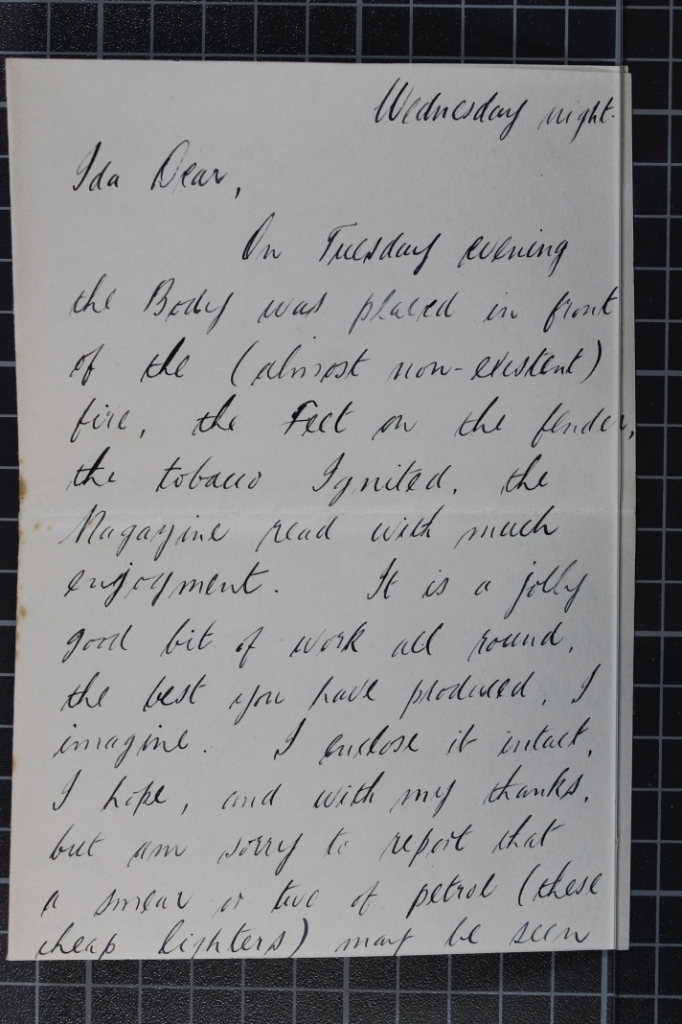 Wednesday night.
Ida Dear,
On Tuesday evening
the Body was placed in front
of the (almost non-existent)
fire, the Feet on the fender,
the tobacco Ignited, the
Magazine read with much
enjoyment. It is a jolly
good bit of work all round,
the best you have produced, I
imagine. I enclose it intact,
I hope, and with my thanks,
but am sorry to report that
a smear or two of petrol (these
cheap lighters) may be seen